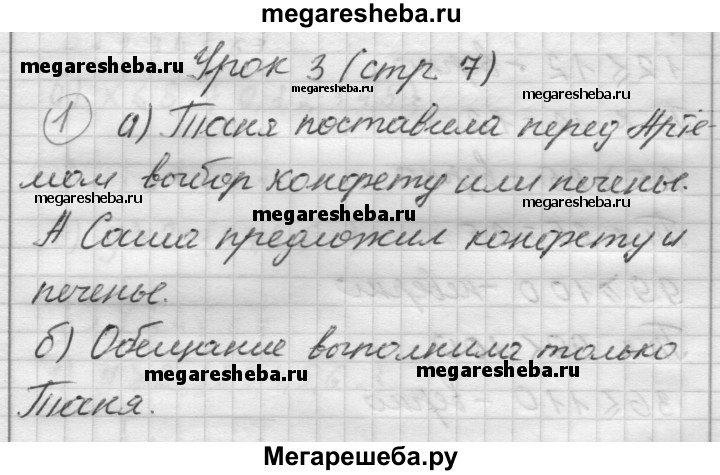 megaresheba.ru
Урок 3 (стр. 7)
megaresheba.ru
megaresheba.ru
megaresheba.ru
1 а) Тасня поставила перед Артё-
мом выбор конфету или печенье.
megaresheba.ru
megaresheba.ru
megaresheba.ru
А Саша предложил конфету и
печенье.
б) Обещание выполнила только
megaresheba.ru
megaresheba.ru
Тасня.
Мегарешеба.ру